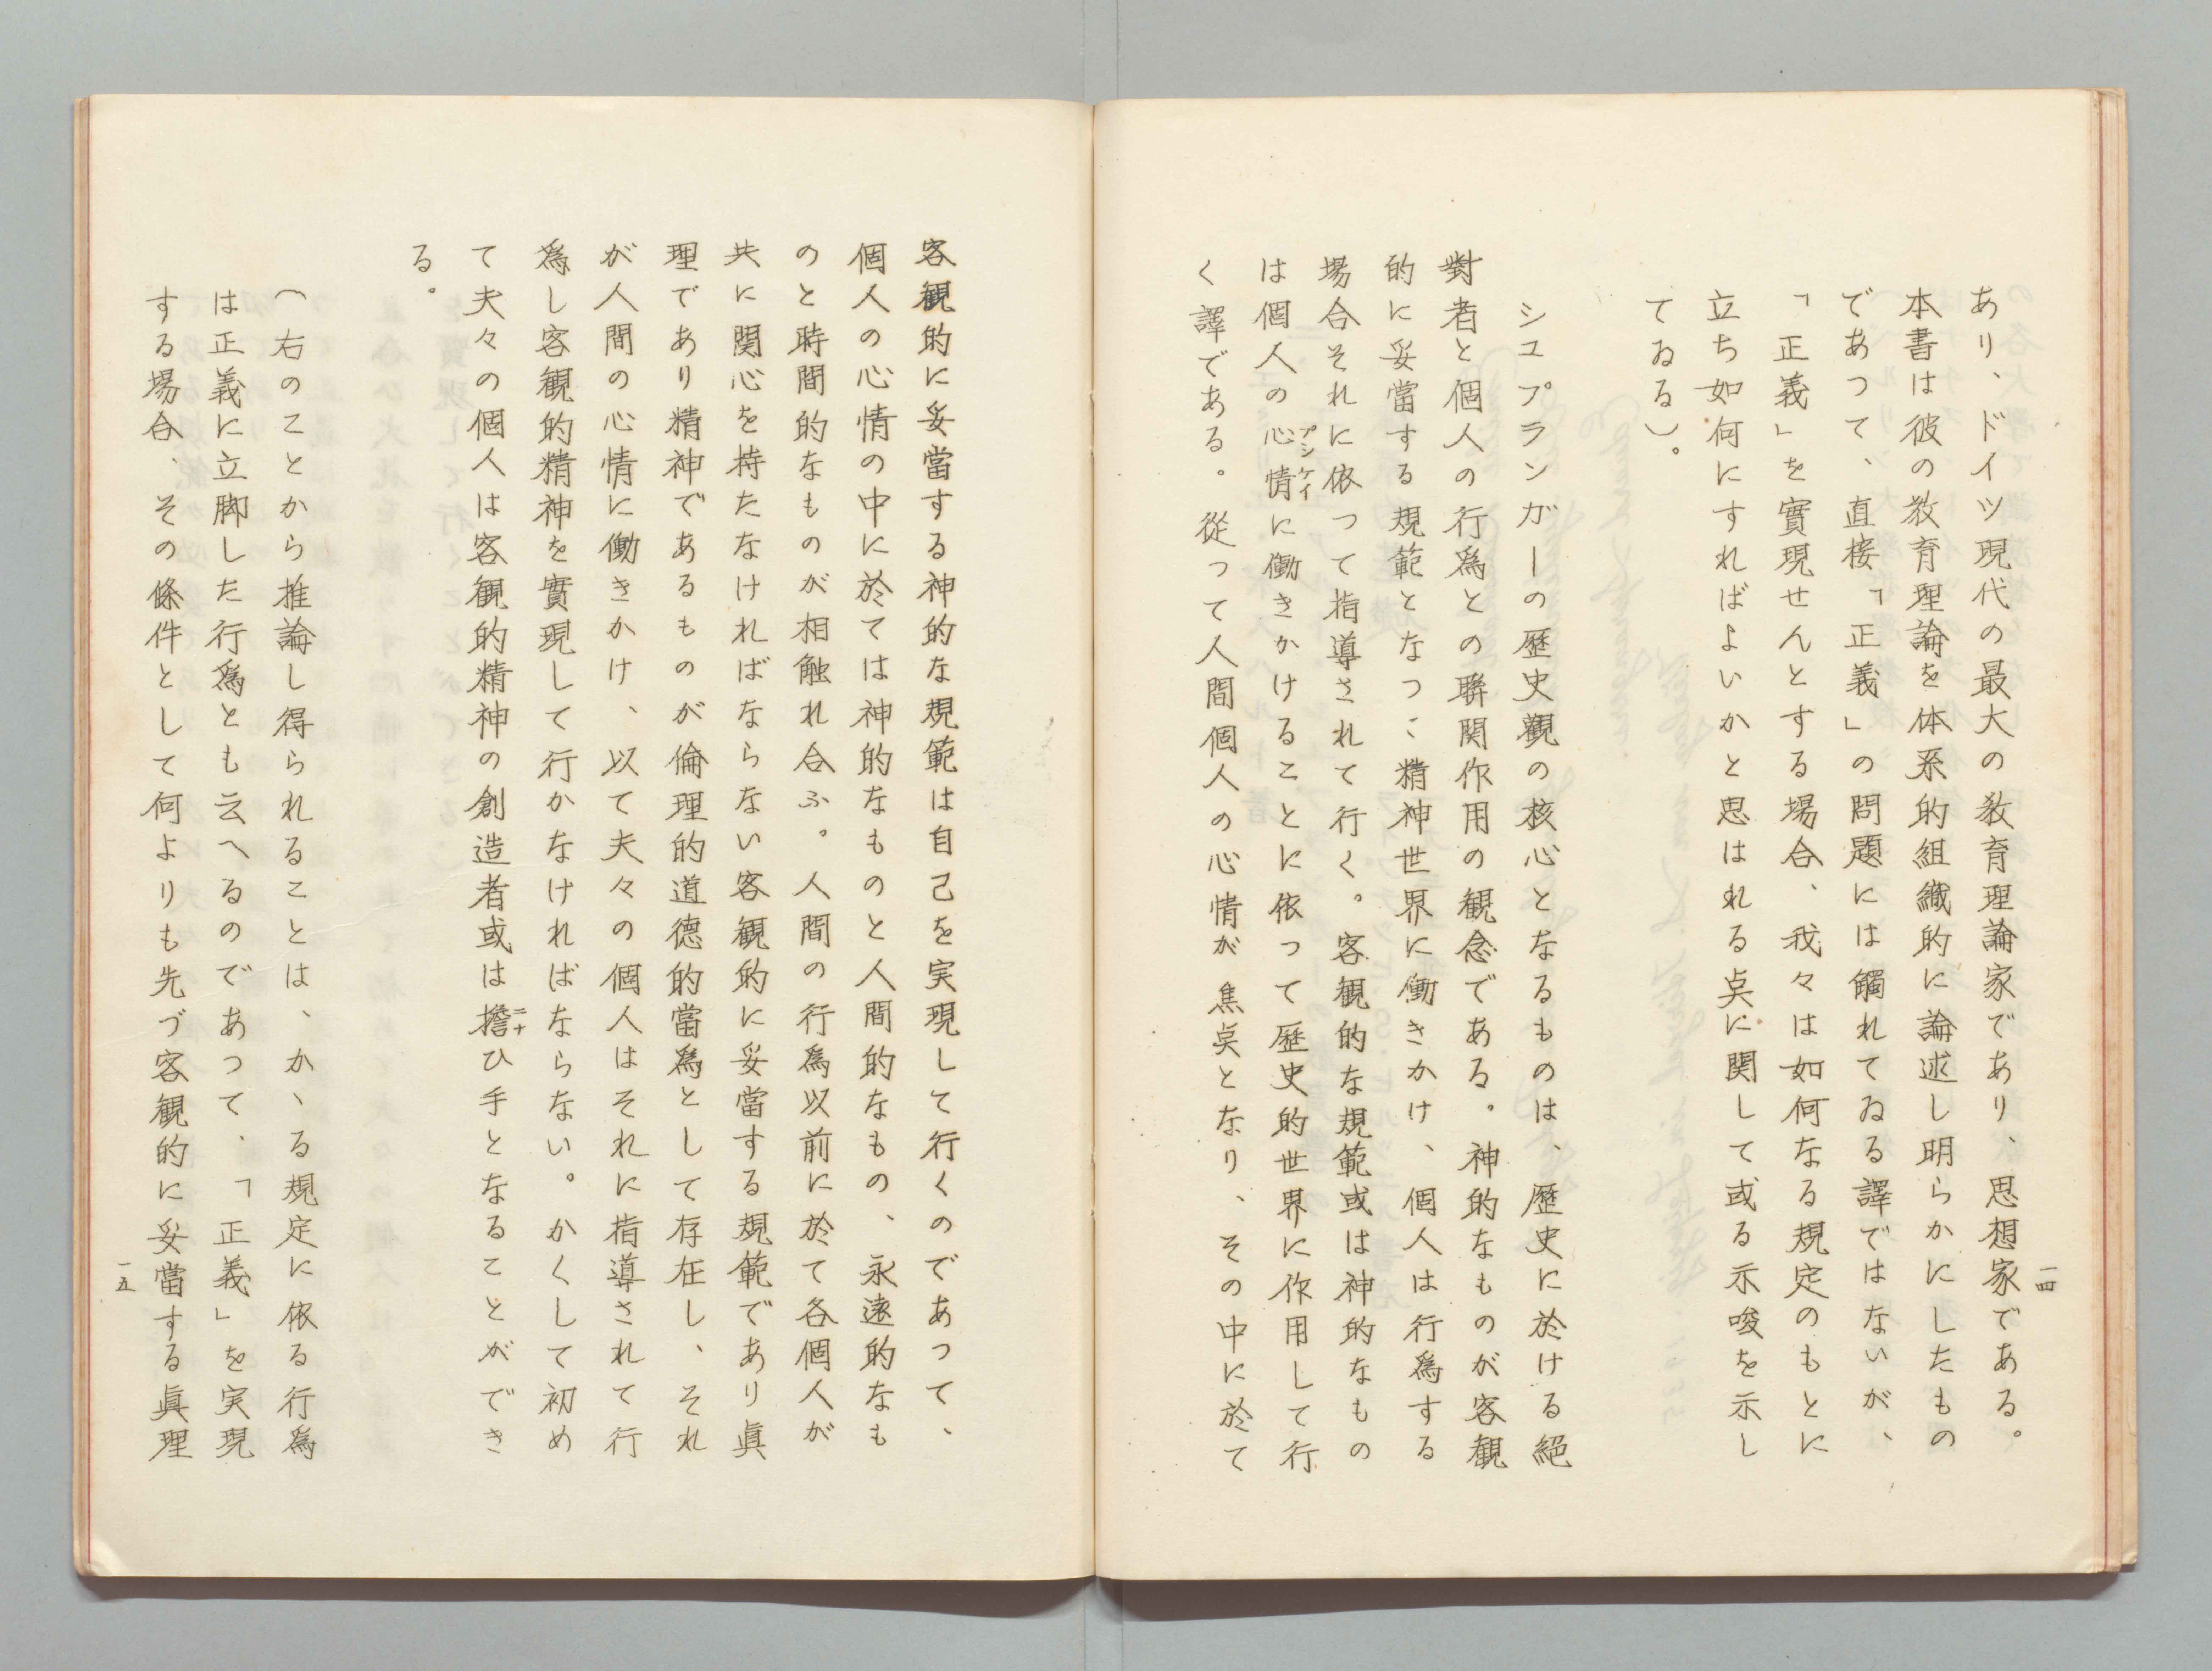 あり、ドイツ現代の最大の教育理論家であり、思想家である。
本書は彼の教育理論を体系的組織的に論述し明らかにしたもの
であつて、直接「正義」の問題には觸れてゐる譯ではないが、
「正義」を實現せんとする場合、我々は如何なる規定のもとに
立ち如何にすればよいかと思はれる点に関して或る示唆を示し
てゐる）。
シユプランガーの歴史觀の核心となるものは、歴史に於ける絕
對者と個人の行爲との聯関作用の観念である。神的なものが客観
的に妥當する規範となつゝ精神世界に働きかけ、個人は行爲する
場合それに依つて指導されて行く。客観的な規範或は神的なもの
は個人の心情に働きかけることに依って歴史的世界に作用して行
プシケイ
く譯である。從って人間個人の心情が焦点となり、その中に於て
一四
客観的に妥當する神的な規範は自己を実現して行くのであつて、
個人の心情の中に於ては神的なものと人間的なもの、永遠的なも
のと時間的なものが相触れ合ふ。人間の行爲以前に於て各個人が
共に関心を持たなければならない客観的に妥當する規範であり眞
理であり精神であるものが倫理的道德的當爲として存在し、それ
が人間の心情に働きかけ、以て夫々の個人はそれに指導されて行
爲し客観的精神を實現して行かなければならない。かくして初め
て夫々の個人は客観的精神の創造者或は擔ひ手となることができ
ニナ
る。
（右のことから推論し得られることは、かゝる規定に依る行爲
は正義に立脚した行爲とも云へるのであつて、「正義」を実現
する場合、その條件として何よりも先づ客観的に妥當する眞理
一五